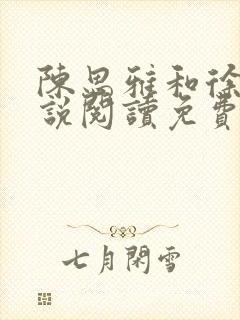 陳思雅和徐
說閱讀免費
七月閑雪